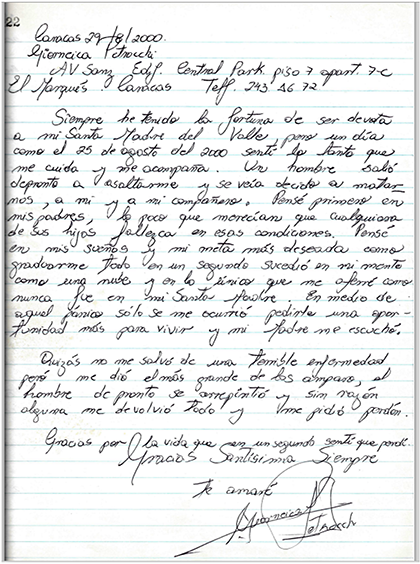 22
Caracas 29/8/2000.
Giorneica Petrocchi
AV Sanz Edif. Central Park piso 7 apart. 7-C
El Marqués Caracas Telf. 243 16 72
Siempre he tenido la fortuna de ser devota
a mi Santa Madre del Valle, pero un día
como el 25 de agosto del 2000 sentí lo tanto que
me cuida y me acompaña. Un hombre salió
depronto a asaltarme y se veía decido a matar
nos, a mi y a mi compañero. Pensé primero en
mis padres, lo poco que merecían que cualquiera
de sus hijos fallezca en esas condiciones. Pensé
en mis sueños y mi meta más deseada como
graduarme todo en un segundo sucedió en mi mente
como una nube y en lo único que me aferré como
nunca fue en mi Santa Madre. En medio de
aquel pánico sólo se me ocurrió pedirle una opor-
tunidad más para vivir y mi Madre me escuchó.
Quizás no me salvó de una temible enfermedad
pero me dió el más grande de los amparo, el
hombre de pronto se arrepintió y sin razón
alguna me devolvió todo y me pidió perdón.
Gracias por la vida que en un segundo sentí que perdí.
Gracias Santísima Siempre
te amaré
Giorneica Petrocchi